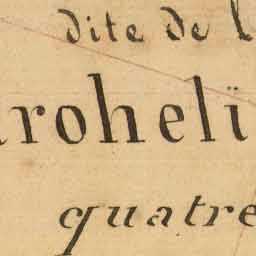 dite de l
arohelï
quatre